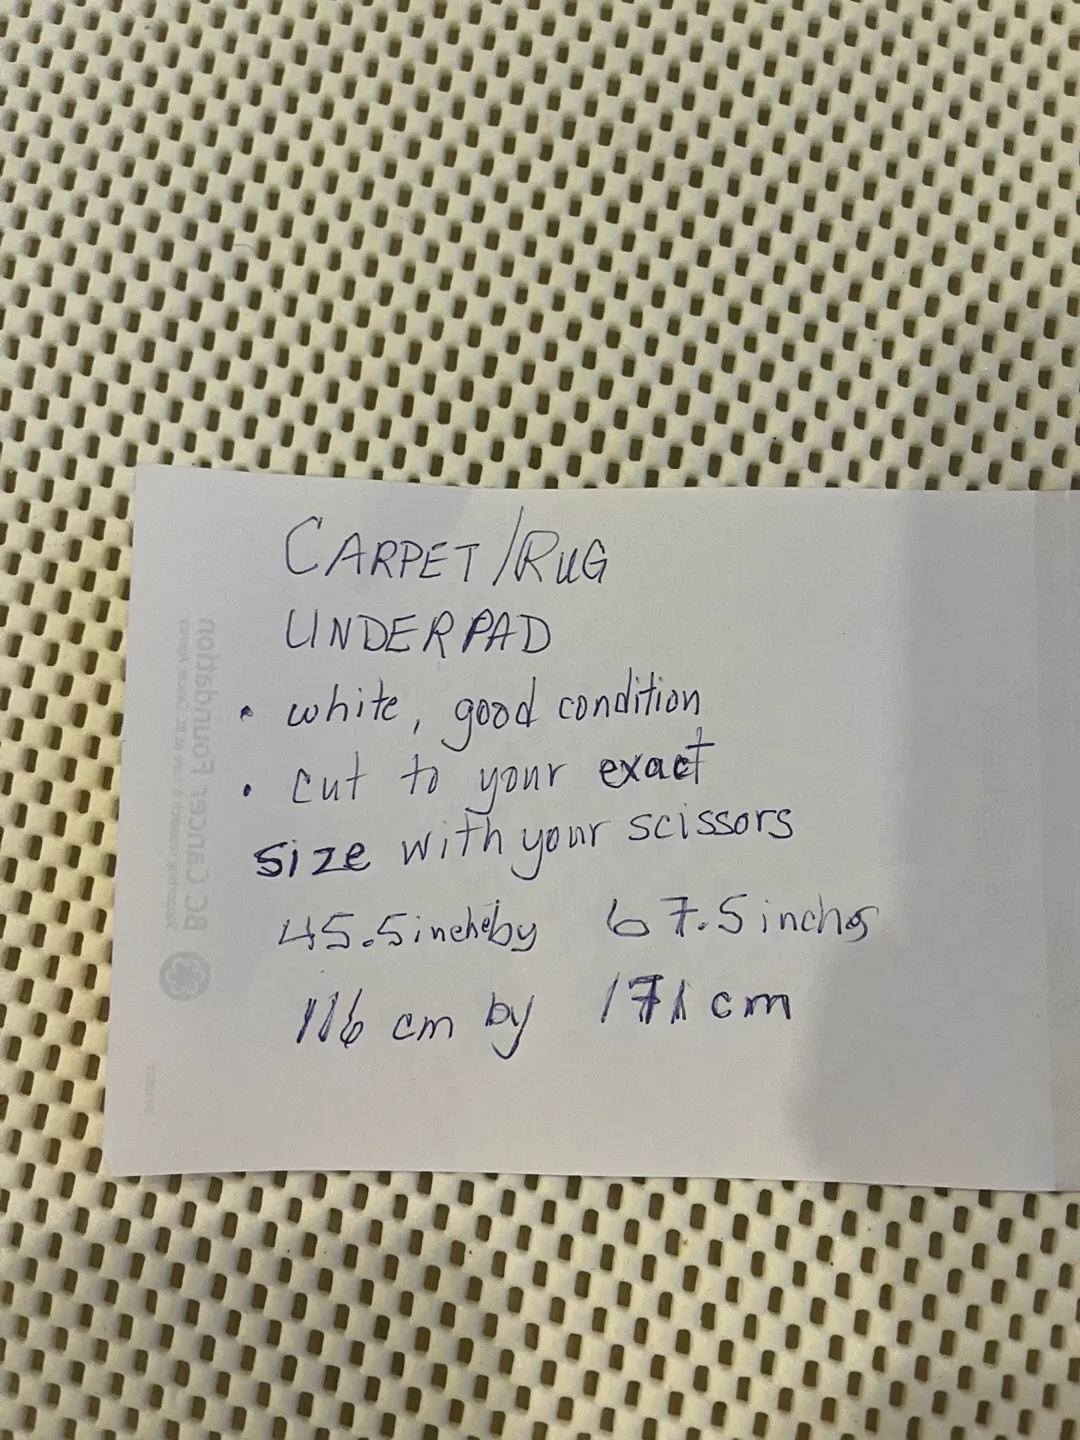 CARPET/RUG
UNDERPAD
• white, good condition
• cut to your exact
size with your scissors
45.5 inche by 67.5 inches
116 cm by 171 cm
BC Cancer Foundation